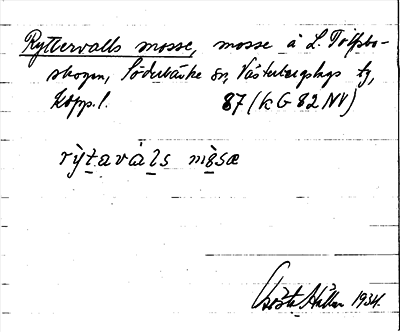 Ryttervalls mosse, mosse å L. Tolfsbo-
skogen, Söderbärke sn, Västerbergslags tg,
Kopp.l. 87 (k G 82 NV)
rỳtavàl̀s mòsæ
Gösta 1934.